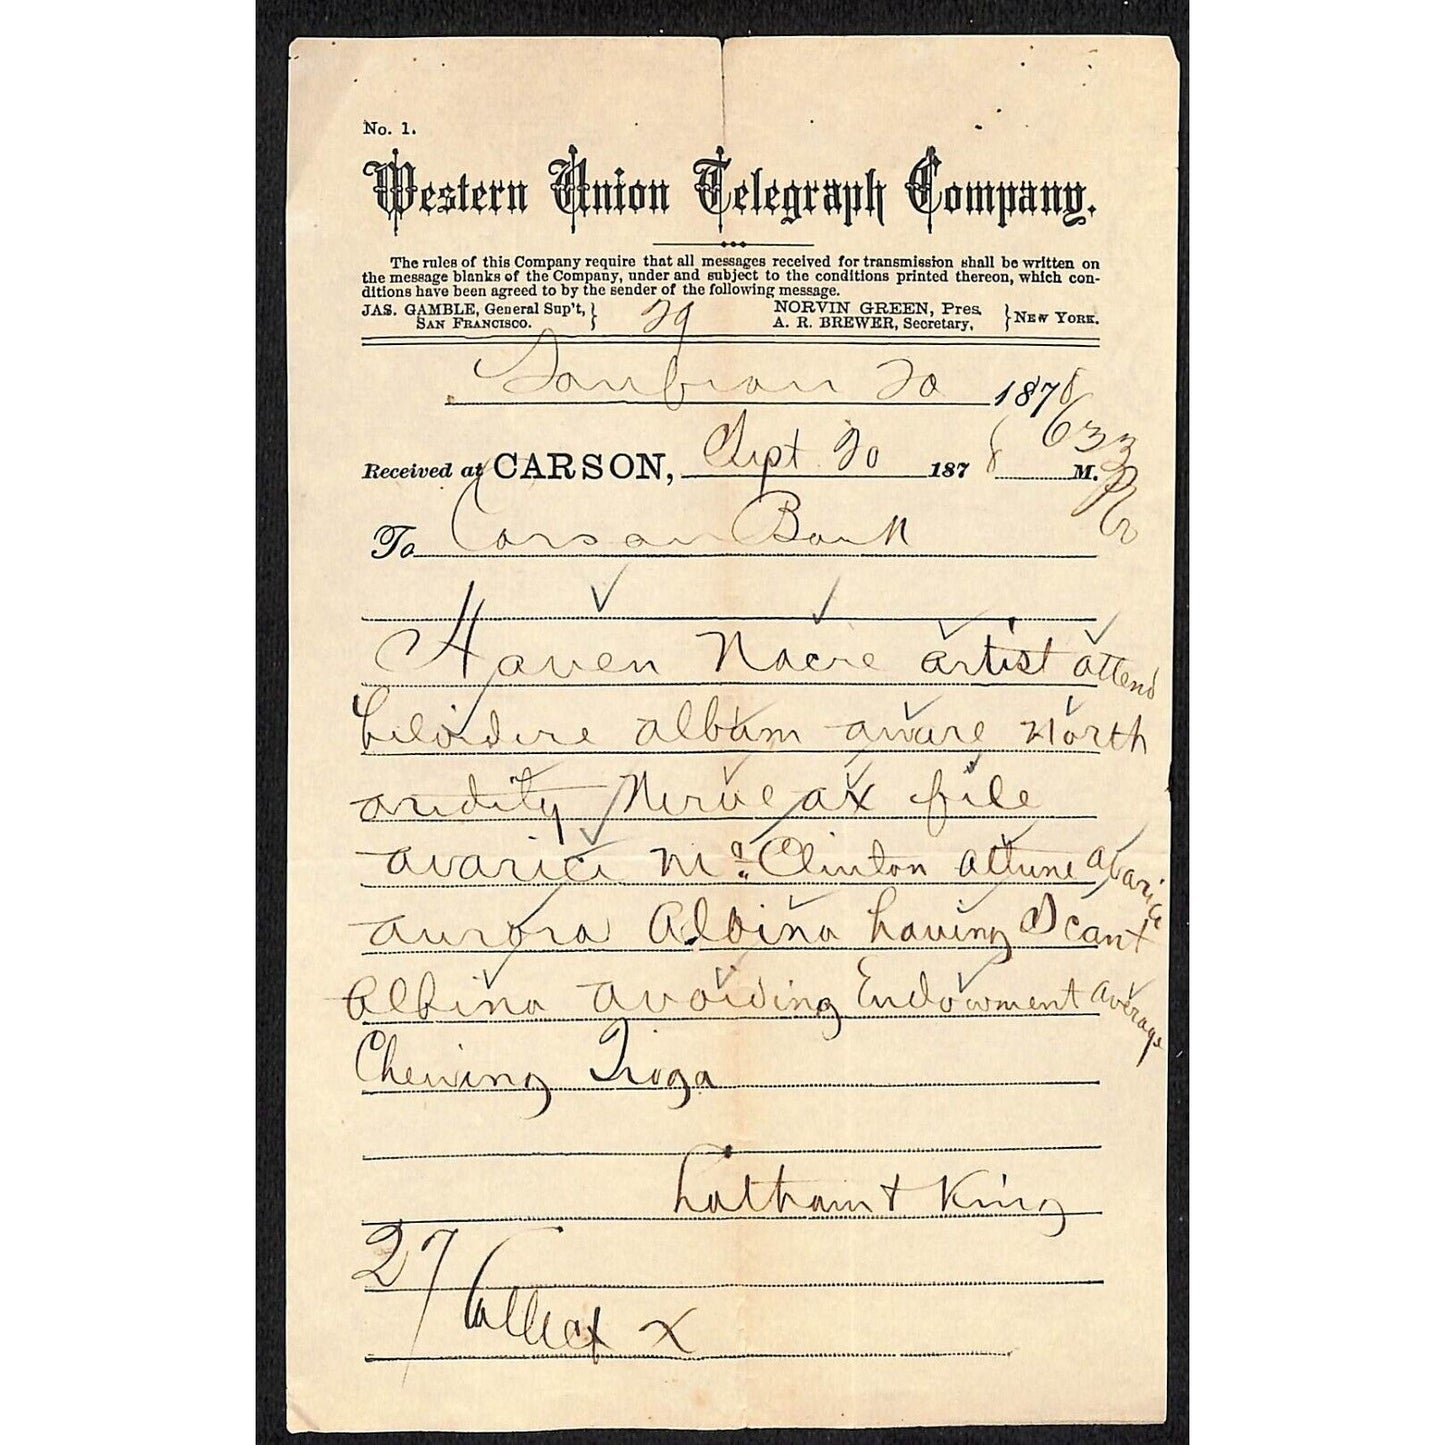 No. 1.
Western Union Telegraph Company.
The rules of this Company require that all messages received for transmission shall be written on
the message blanks of the Company, under and subject to the conditions printed thereon, which con-
ditions have been agreed to by the sender of the following message.
JAS. GAMBLE, General Sup't, } 29 NORVIN GREEN, Pres. } NEW YORK.
SAN FRANCISCO. A. R. BREWER, Secretary,
Sanfran 20 1878
633
Received at CARSON, Sept 20 1878 M.
To Carson Bank
Haven Nacre artist attend
belvidere album aware North
aridity Nerve ax file
avarice McClinton attune avarice
aurora Albina having I cant
Albina avoiding Endowment average
Chewing Tioga
Latham & King
27 Collect x